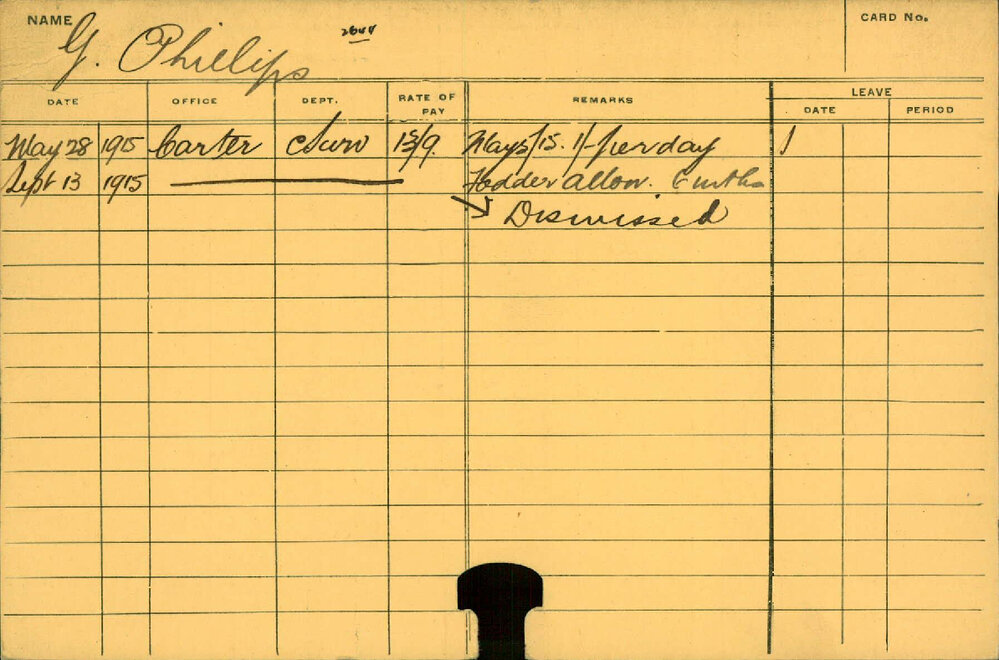 NAME G. Phillips
CARD No.
DATE OFFICE DEPT. RATE OF PAY REMARKS LEAVE
DATE PERIOD
May 28 1915 Carter 13/9. 1/- per day
Sept 13 1915 Fodder allow.
Dismissed